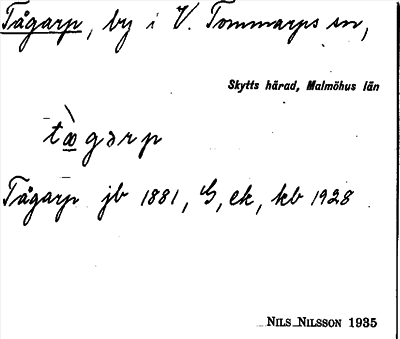 Tågarp, by i V. Tommarps sn,
Skytts härad, Malmöhus län
tæ̀gərp
Tågarp jb 1881, G, ek, kb 1928
NILS NILSSON 1935